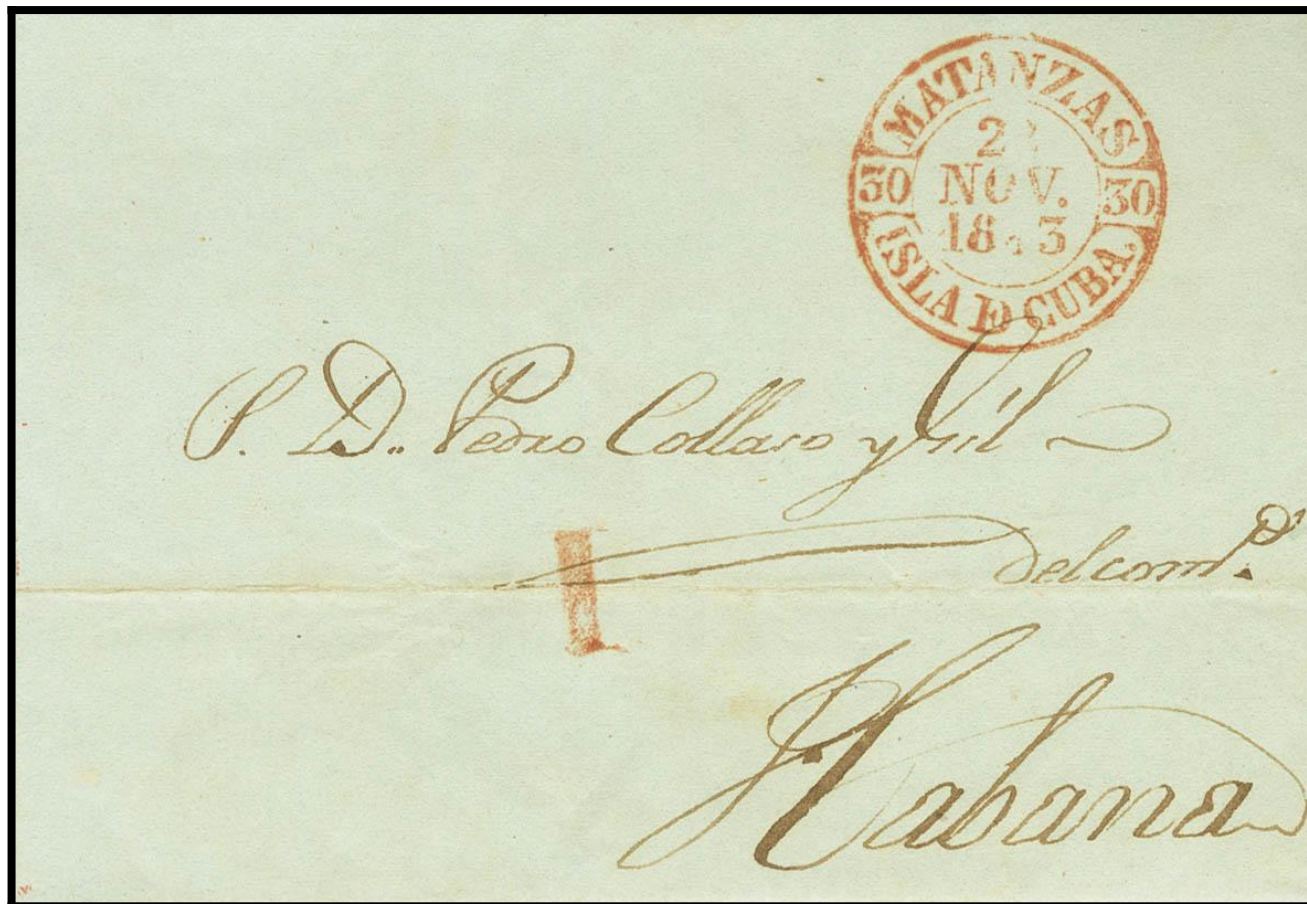 MATANZAS
NOV.
30 30
ISLA DE CUBA.
S. D. Pedro Collaso y Gil
del com.º
Habana